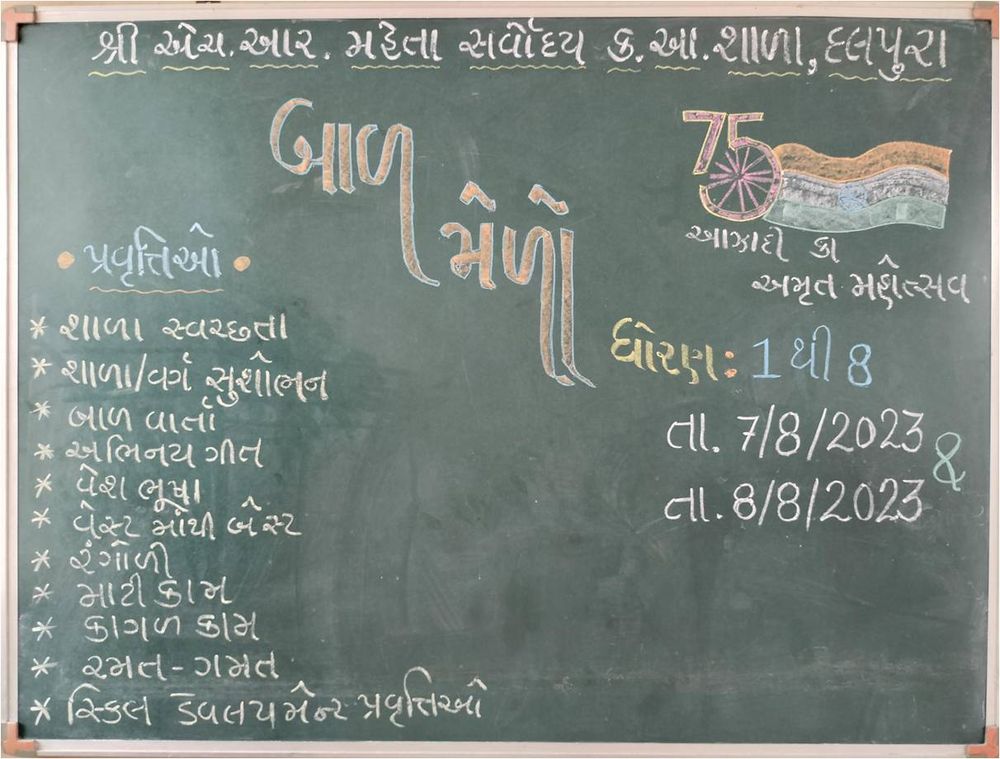 શ્રી એચ.આર. મહેતા સર્વોદય ક.આ.શાળા, દલપુરા
બાળ
મેળો
75
આઝાદી કા
અમૃત મહોત્સવ
• પ્રવૃત્તિઓ •
* શાળા સ્વચ્છતા
* શાળા/વર્ગ સુશોભન
* બાળ વાર્તા
* અભિનય ગીત
* વેશ ભૂષા
* વેસ્ટ માંથી બેસ્ટ
* રંગોળી
* માટી કામ
* કાગળ કામ
* રમત-ગમત
* સ્કિલ ડેવલપમેન્ટ પ્રવૃત્તિઓ
ધોરણ: 1 થી 8
તા. 7/8/2023 &
તા. 8/8/2023